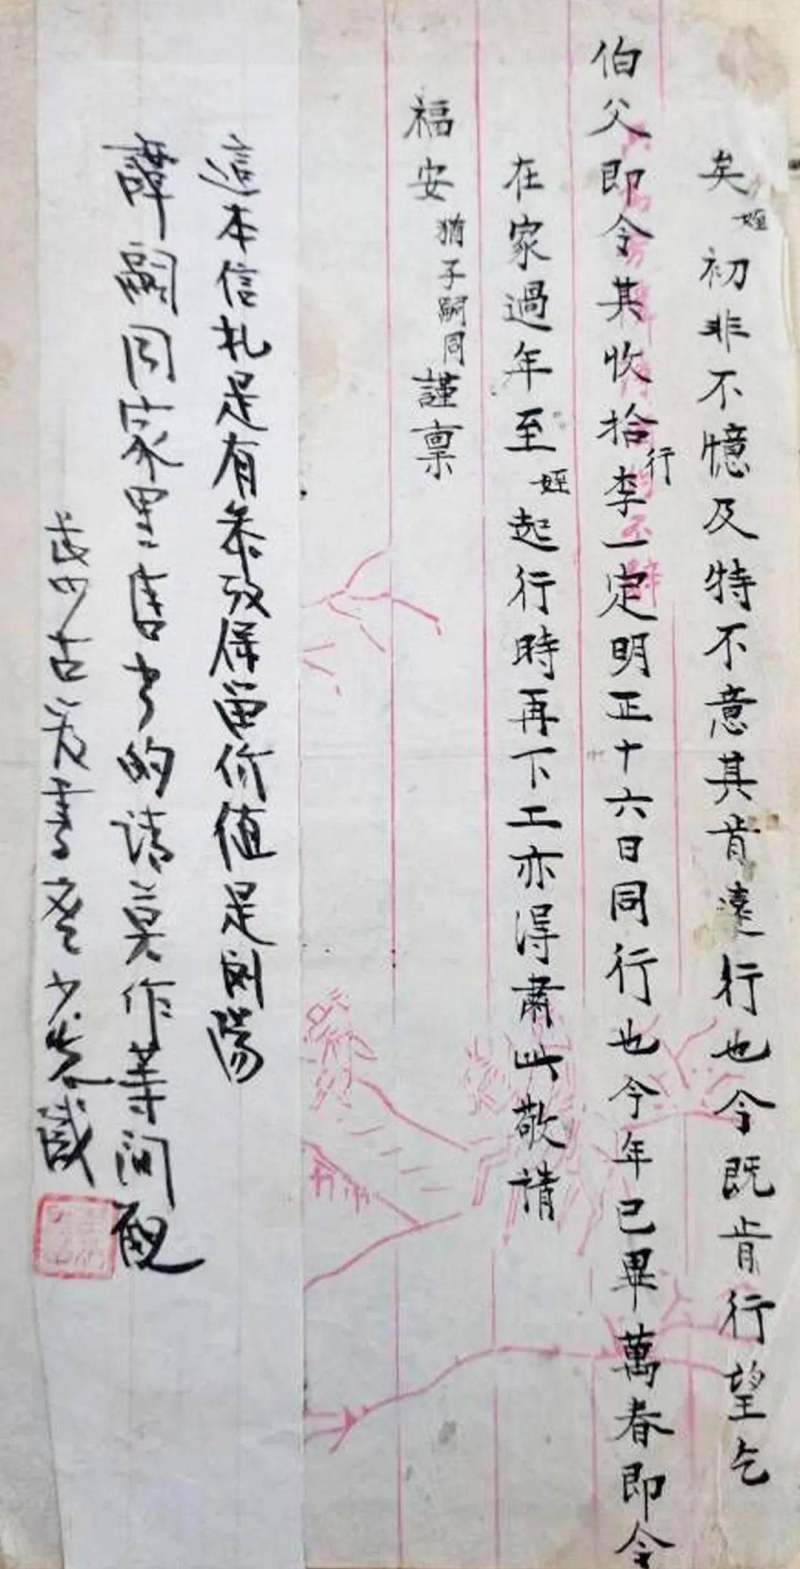 矣姪初非不憶及特不意其肯遠行也今既肯行望乞
伯父即令其收拾行李一定明正十六日同行也今年已畢萬春即令
在家過年至姪起行時再下工亦得肅此敬請
福安猶子嗣同謹稟
這本信札是有參攷保留价值是浏陽
譚嗣同家里售出的请莫作等闲观
古爱書